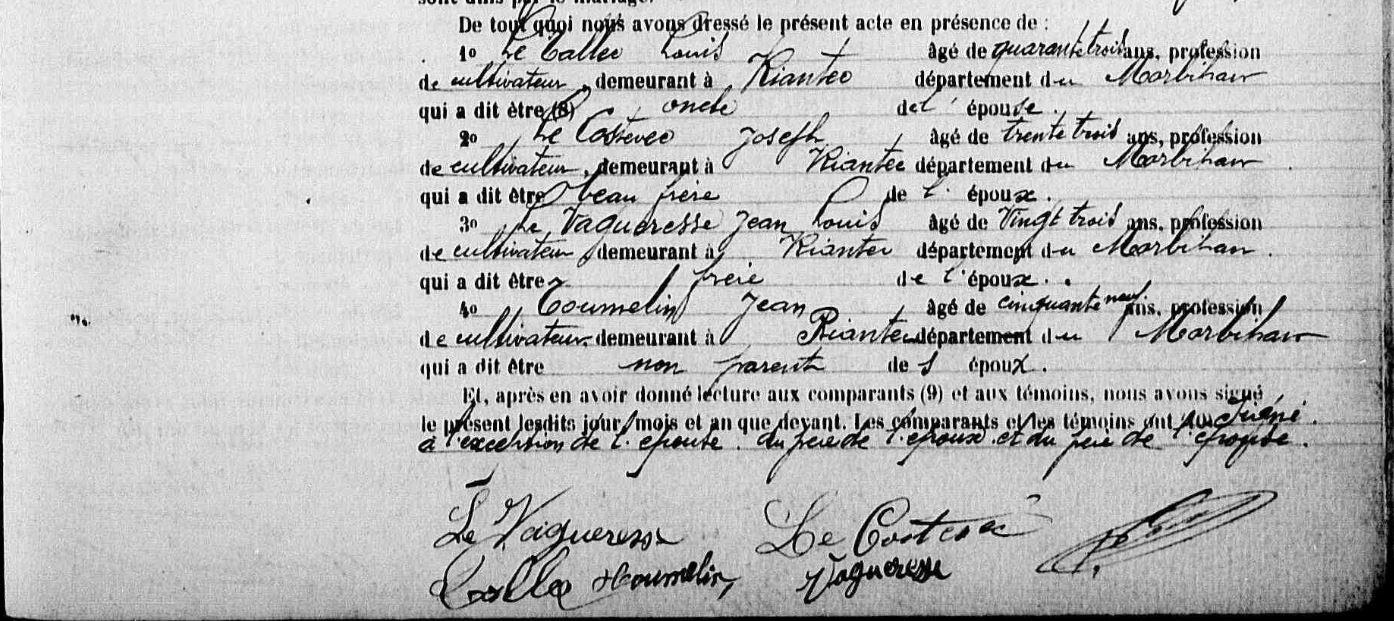 sont unis par le mariage.
De tout quoi nous avons dressé le présent acte en présence de :
1o Le Callec Louis âgé de quarante trois ans, profession
de cultivateur, demeurant à Riantec département du Morbihan
qui a dit être (8) oncle de l' épouse.
2o Le Costevec Joseph âgé de trente trois ans, profession
de cultivateur, demeurant à Riantec département du Morbihan
qui a dit être beau frère de l' époux.
3o Le Vagueresse Jean Louis âgé de Vingt trois ans, profession
de cultivateur, demeurant à Riantec département du Morbihan.
qui a dit être frère de l'époux.
4o Toumelin Jean âgé de cinquante neuf ans, profession
de cultivateur demeurant à Riantec département du Morbihan
qui a dit être non parent des époux.
Et, après en avoir donné lecture aux comparants (9) et aux témoins, nous avons signé
le présent lesdits jour, mois et an que devant. Les comparants et les témoins ont signé.
à l'exception de l'épouse. du père de l'époux et du père de l'épouse.
Le Vagueresse Le Costevec
Callec Toumelin Vagueresse